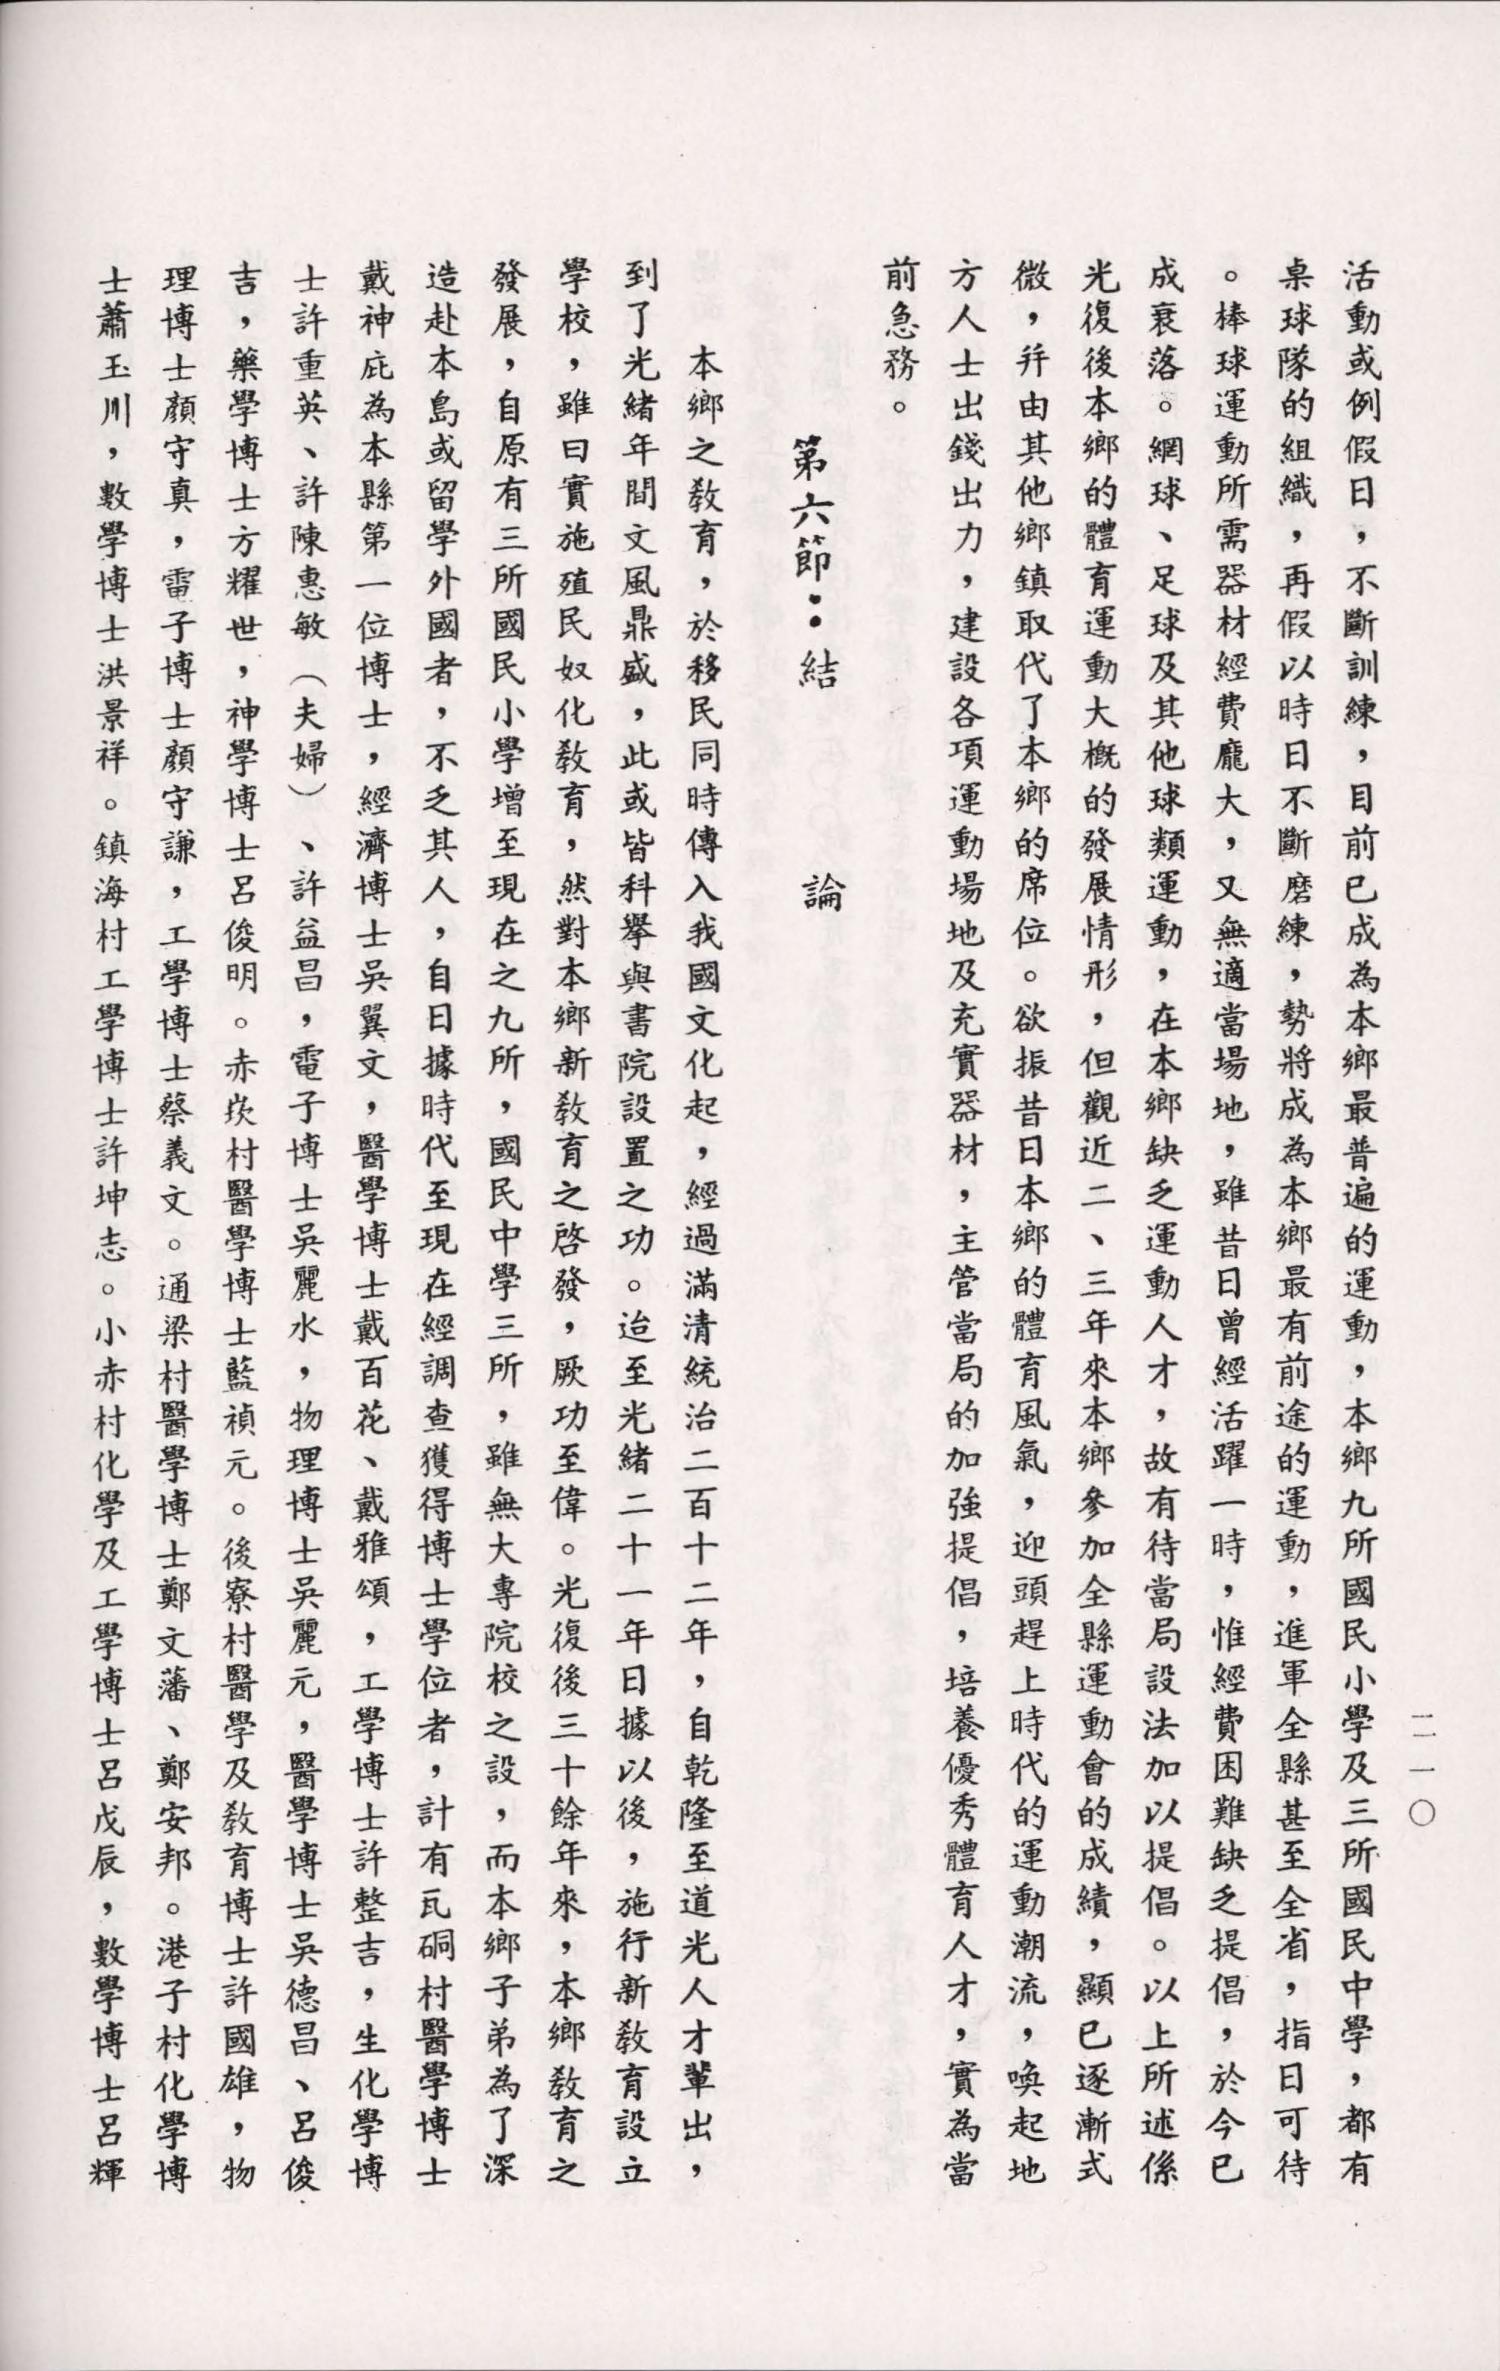 二一〇
活動或例假日，不斷訓練，目前已成為本鄉最普遍的運動，本鄉九所國民小學及三所國民中學，都有
桌球隊的組織，再假以時日不斷磨練，勢將成為本鄉最有前途的運動，進軍全縣甚至全省，指日可待
。棒球運動所需器材經費龐大，又無適當場地，雖昔日曾經活躍一時，惟經費困難缺乏提倡，於今已
成衰落。網球、足球及其他球類運動，在本鄉缺乏運動人才，故有待當局設法加以提倡。以上所述係
光復後本鄉的體育運動大概的發展情形，但觀近二、三年來本鄉參加全縣運動會的成績，顯已逐漸式
微，幷由其他鄉鎮取代了本鄉的席位。欲振昔日本鄉的體育風氣，迎頭趕上時代的運動潮流，喚起地
方人士出錢出力，建設各項運動場地及充實器材，主管當局的加強提倡，培養優秀體育人才，實為當
前急務。
第六節：結　論
本鄉之教育，於移民同時傳入我國文化起，經過滿清統治二百十二年，自乾隆至道光人才輩出，
到了光緒年間文風鼎盛，此或皆科舉與書院設置之功。迨至光緒二十一年日據以後，施行新教育設立
學校，雖曰實施殖民奴化教育，然對本鄉新教育之啓發，厥功至偉。光復後三十餘年來，本鄉教育之
發展，自原有三所國民小學增至現在之九所，國民中學三所，雖無大專院校之設，而本鄉子弟為了深
造赴本島或留學外國者，不乏其人，自日據時代至現在經調查獲得博士學位者，計有瓦硐村醫學博士
戴神庇為本縣第一位博士，經濟博士吳翼文，醫學博士戴百花、戴雅頌，工學博士許整吉，生化學博
士許重英、許陳惠敏（夫婦）、許益昌，電子博士吳麗水，物理博士吳麗元，醫學博士吳德昌、呂俊
吉，藥學博士方耀世，神學博士呂俊明。赤崁村醫學博士藍禎元。後寮村醫學及教育博士許國雄，物
理博士顏守真，電子博士顏守謙，工學博士蔡義文。通梁村醫學博士鄭文藩、鄭安邦。港子村化學博
士蕭玉川，數學博士洪景祥。鎮海村工學博士許坤志。小赤村化學及工學博士呂戊辰，數學博士呂輝